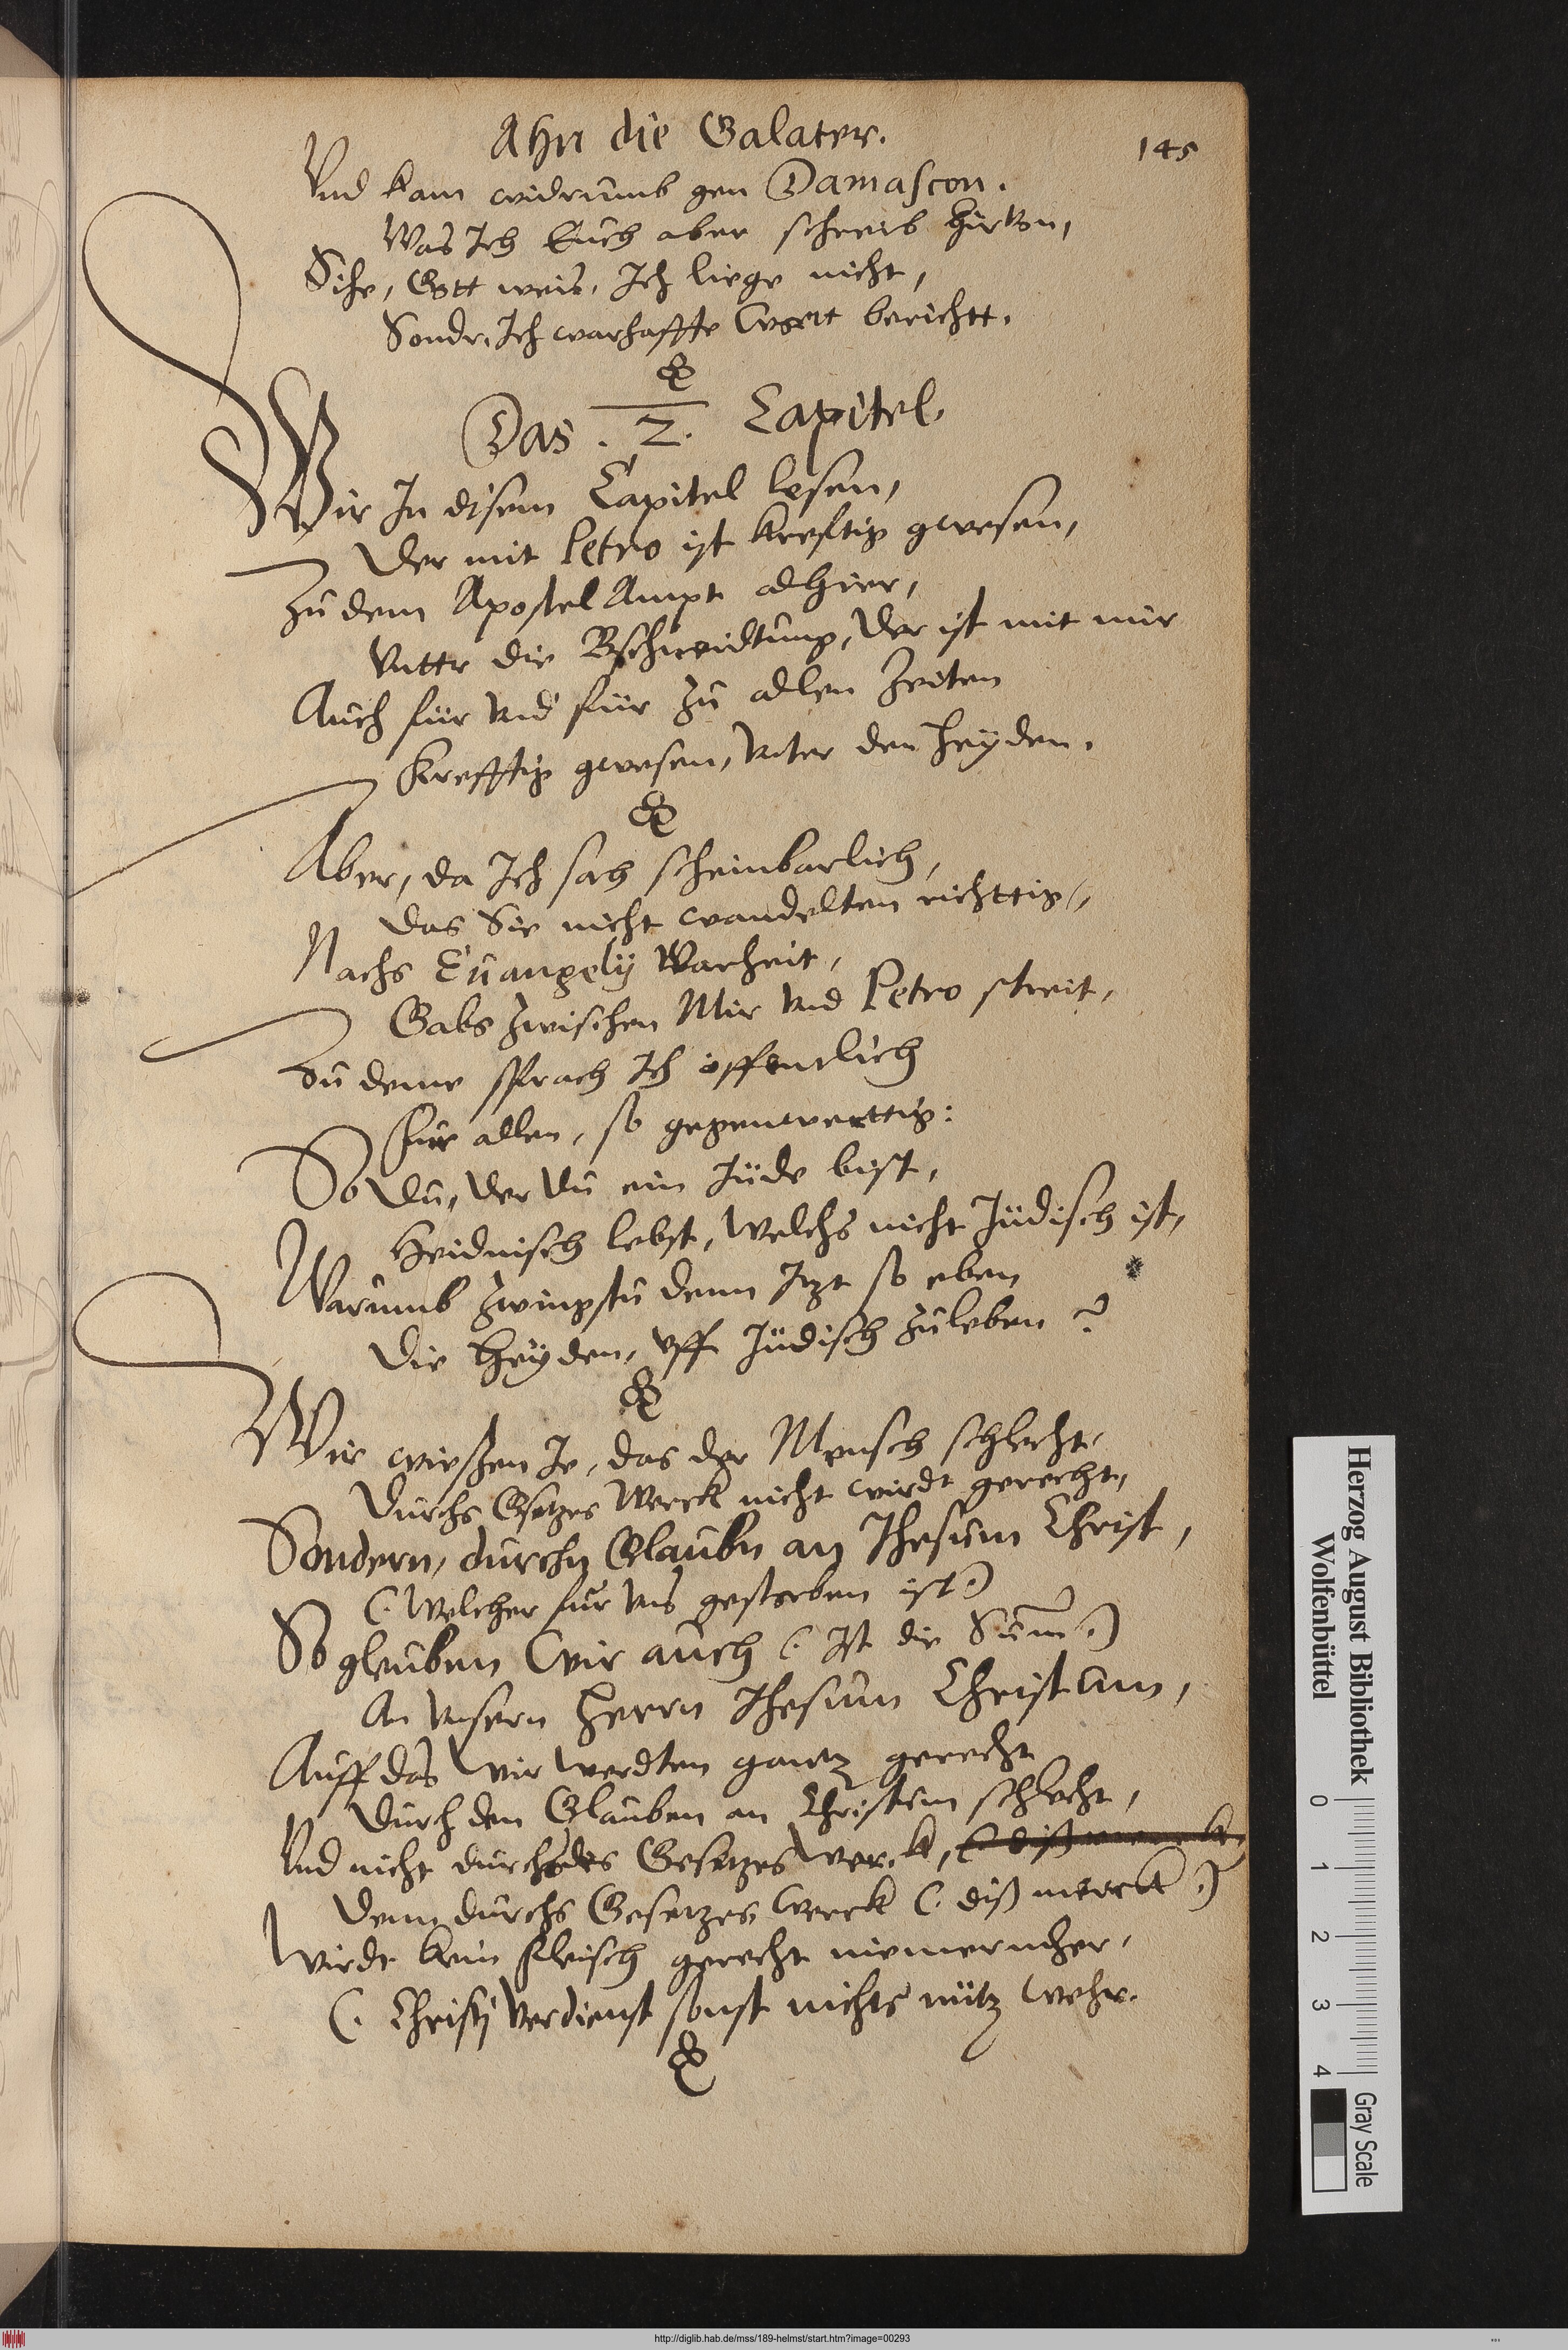 Ahn die Galater.
145
Vnd kam widrumb gen Damascon.
Was Ich Euch aber schreib hirvon,
Sihe, Gott weis, Ich liege nicht,
Sondr, Ich warhaffte wort bericht.
Das . 2. Capitel
Wir In disem Capitel lesen,
Der mit Petro ist krefftig gwesen,
Zu dem Apostel Ampt alhier,
Vnttr die Bschneidtung, Der ist mit mir
Auch für vnd für zu allen Zeiten
Krefftig gwesen, vnter den Heyden.
Aber, da Ich sah scheinbarlich,
Das Sie nicht wandelten richttig,
Nachs Euangelij Warheit,
Gabs zwischen Mir vnd Petro streit,
Zu deme sprach Ich öffentlich
Für allen, so gegenwerttig:
So Du, der Du ein Jüde bist,
Heidnisch lebst, Welchs nicht Jüdisch ist,
Warumb zwingstu denn Itzt so eben
Die Heyden, vff Jüdisch zuleben?
Wir wissen Je, das der Mensch schlecht,
Durchs Gsetzes Werck nicht wirdt gerecht,
Sondern, durchn Glaubn an Jhesum Christ,
(. Welcher für vns gestorben ist.)
So gleuben Wir auch (. Ist die Summ.)
An vnsern Herrn Jhesum Christum,
Auff das Wir werdten gantz gerecht
Durch den Glauben an Christum schlecht,
Vnd nicht durchs des Gesetzes Werck, (. diß merck,
Denn durchs Gesetzes Werck (. diß merck.)
Wirdt kein fleisch gerecht niemermher,
(. Christj Verdienst sonst nichts nütz wehr.
Herzog August Bibliothek
Wolfenbüttel
0 1 2 3 4
Gray Scale
http://diglib.hab.de/mss/189-helmst/start.htm?image=00293